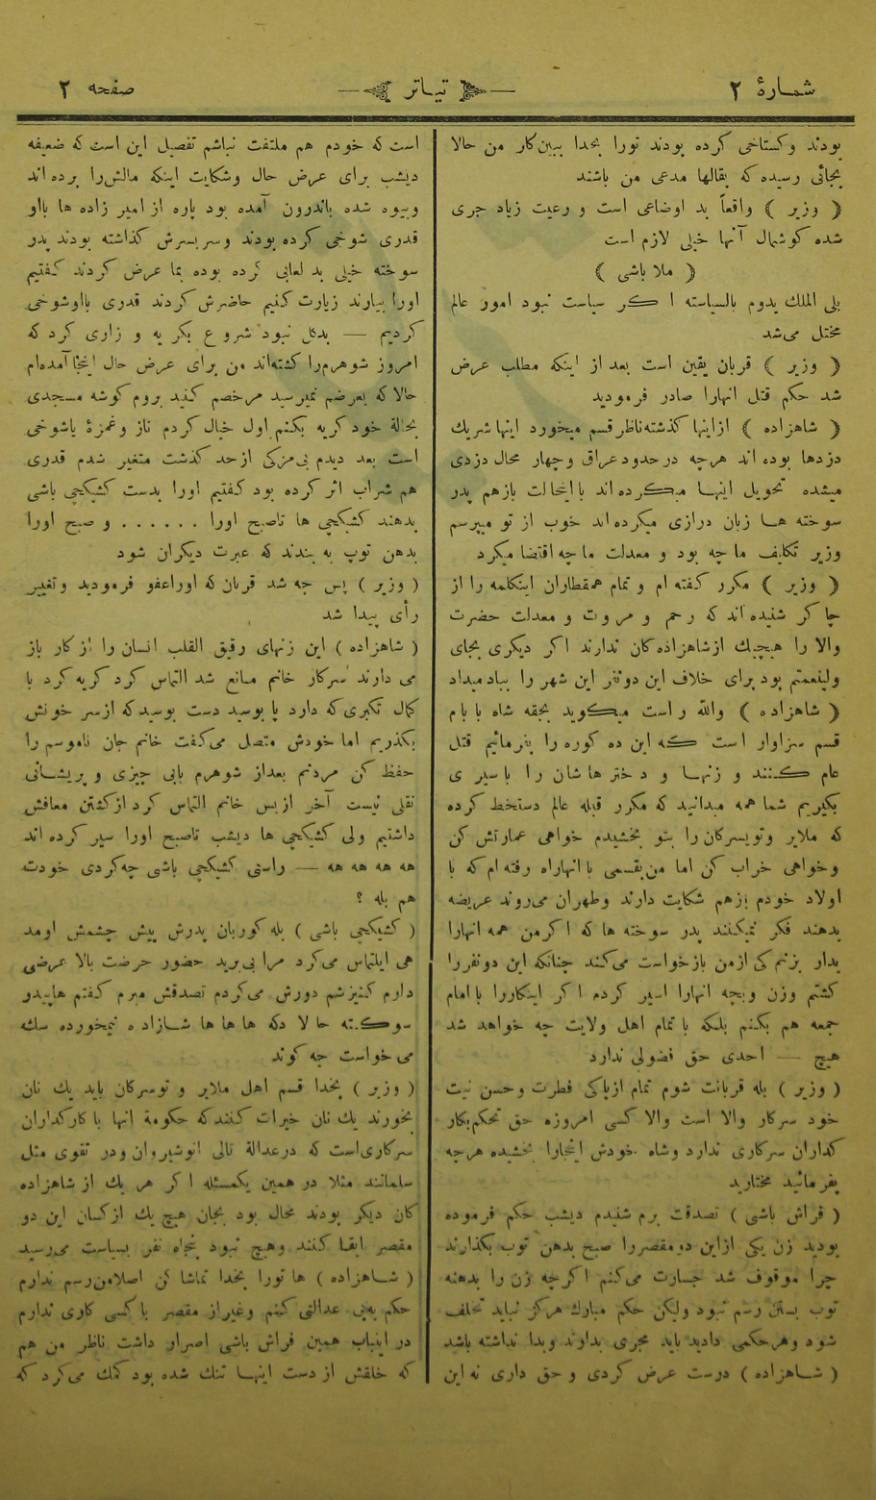 شمارهٔ ۲
تیاتر
صفحه ۲
بودند وکستاخی کرده بودند تورا بخدا ببین کار من حالا
بجائی رسیده که بقالها مدعی من باشند
( وزیر ) واقعاً بد اوضاعی است و رعیت زیاد جری
شده کوشمال آنها خیلی لازم است
( ملا باشی )
بلی الملک یدوم بالسیاسته ا کر سیاست نبود امور عالم
مختل می‌شد
( وزیر ) قربان یقین است بعد از اینکه مطلب عرض
شد حکم قتل انهارا صادر فرمودید
( شاهزاده ) ازاینها کذشته ناظر قسم میخورد اینها شریک
دزدها بوده اند هرچه در حدود عراق وچهار محال دزدی
میشده تحویل اینها میکرده اند با اینحالت بازهم پدر
سوخته ها زبان درازی میکرده اند خوب از تو میپرسم
وزیر تکلیف ما چه بود و معدلت ما چه اقتضا میکرد
( وزیر ) مکرر کفته ام و تمام همقطاران اینکلمه را از
چا کر شنیده اند که رحم و مروت و معدلت حضرت
والا را هیچیک ازشاهزاده کان ندارند اکر دیکری بجای
ولینعمتم بود برای خلاف این دونفر این شهر را بباد میداد
( شاهزاده ) والله راست میکوید بجقه شاه بابام
قسم سزاوار است که این ده کوره را بفرمائیم قتل
عام کنند و زنها و دختر هاشان را باسیری
بکیریم شما همه میدانید که مکرر قبله عالم دستخط کرده
که ملایر وتویسرکان را بتو بخشیدم خواهی عمارتش کن
وخواهی خراب کن اما من بقسمی با انهاراه رفته ام که با
اولاد خودم بازهم شکایت دارند وطهران می‌روند عریضه
بدهند فکر نمیکنند پدر سوخته ها که اکرمن همه انهارا
بدار بزنم کی ازمن بازخواست می‌کند چنانکه این دونفررا
کشتم وزن وبچه انهارا اسیر کردم اکر اینکاررا باامام
جمعه هم بکنم بلکه با تمام اهل ولایت چه خواهد شد
هیچ — احدی حق فضولی ندارد
( وزیر ) بله قربانت شوم تمام ازپاکی فطرت وحسن نیت
خود سرکار والا است والا کسی امروزه حق تحکم بکار
کذاران سرکاری ندارد وشاه خودش اینجارا بخشیده هرچه
بفرمائید مختارید
( فراش باشی ) تصدقت برم شنیدم دیشب حکم فرموده
بودید زن یکی ازاین دومقصررا صبح بدهن توپ بکذارند
چرا موقوف شد جسارت می‌کنم اکرچه زن را بدهنه
توپ بستن رسم نبود ولیکن حکم مبارک هرکز نباید تخلف
شود وهرحکمی دادید باید مجری بدارند وبدا نداشته باشد
( شاهزاده ) درست عرض کردی و حق داری نه این
است که خودم هم ملتفت نباشم تفصیل این است که ضعیفه
دیشب برای عرض حال وشکایت اینکه مالش را برده اند
وبیوه شده باندرون آمده بود پاره از امیر زاده ها بااو
قدری شوخی کرده بودند وسر بسرش کذاشته بودند پدر
سوخته خیلی بد لعابی کرده بوده بما عرض کردند کفتیم
اورا بیارند زیارت کنیم حاضرش کردند قدری بااوشوخی
کردیم — بدکل نبود شروع بکریه و زاری کرد که
امروز شوهرم‌را کشته‌اند من برای عرض حال اینجا آمده‌ام
حالا که بعرضم نمیرسید مرخصم کنید بروم کوشه مسجدی
بحالة خود کریه بکنم اول خیال کردم ناز وغمزهٔ باشوخی
است بعد دیدم بی‌مزکی ازحد کذشت متغیر شدم قدری
هم شراب اثر کرده بود کفتیم اورا بدست کشیکچی باشی
بدهند کشیکچی ها تاصبح اورا . . . . . . و صبح اورا
بدهن توپ به بندند که عبرت دیکران شود
( وزیر ) پس چه شد قربان که اوراعفو فرمودید وتغییر
رأی پیدا شد
( شاهزاده ) این زنهای رقیق القلب انسان را از کار باز
می دارند سرکار خانم مانع شد التماس کرد کریه کرد با
کمال تکبری که دارد پا بوسید دست بوسید که از سر خونش
بکذریم اما خودش متصل می‌کفت خانم جان ناموسم را
حفظ کن مردنم بعداز شوهرم بابی چیزی و پریشانی
نقلی نیست آخر ازبس خانم التماس کرد ازکشتن معافش
داشتیم ولی کشیکچی ها دیشب تاصبح اورا سیر کرده اند
هه هه هه هه — راستی کشیکچی باشی چه کردی خودت
هم بله ؟
( کشیکچی باشی ) بله کوربان پدرش پیش چشمش اومد
هی ایلتماس می‌کرد مرا ببرید حضور حرضت بالا عرضی
دارم کنیزشم دورش می‌کردم تصدقش میرم کفتم هاپیدو
سوکته حا لا دکه ها ها ها شازاد ه نمیخورده سکه
می خواست چه کوند
( وزیر ) بخدا قسم اهل ملایر و توسرکان باید یک نان
بخورند یک نان خیرات کنند که حکومة انها با کارکذاران
سرکاری‌است که درعدالة ثالی انوشیروان ودر تقوی مثل
سلمانند مثلا در همین یکمسئله ا کر هر یک از شاهزاده
کان دیکر بودند محال بود بجان هیچ یک ازکسان این دو
مقصر ابقا کنند وهیچ نبود پنجاه نفر بسیاست می‌رسید
( شاهزاده ) ها تورا بخدا تماشا کن اصلامن رسم ندارم
حکم به‌بی عدالتی کنم وغیراز مقصر با کسی کاری ندارم
در اینباب همین فراش باشی اصرار داشت ناظر من هم
که خلقش از دست اینها تنک شده بود کمک می‌کرد که